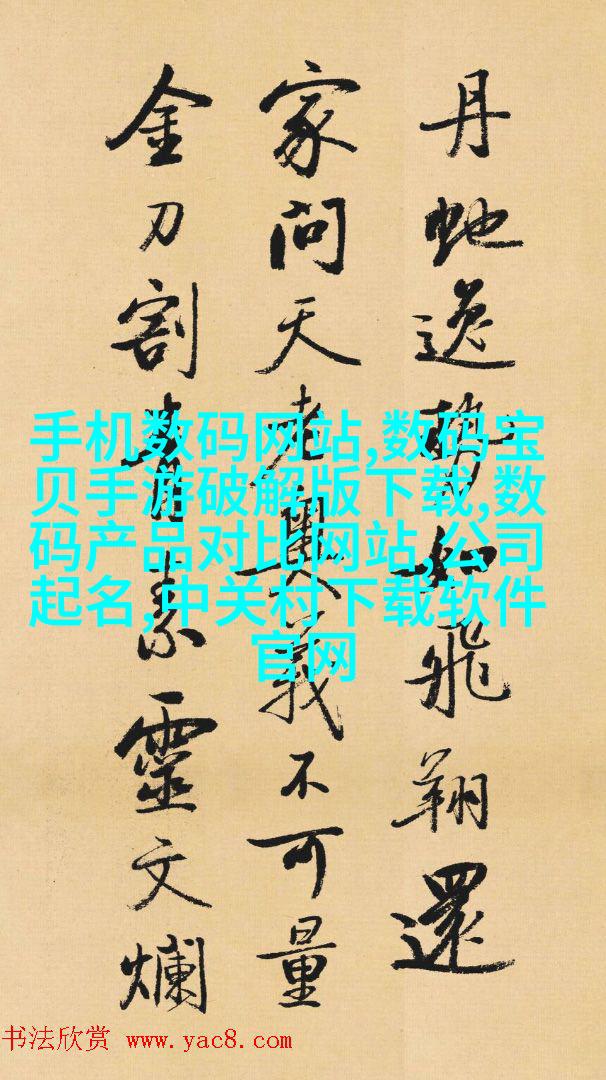 丹虵逸勢如飛翔還
家問天老奧義不可量
金刀割青素靈文爛
手机数码网站,数码宝
贝手游破解版下载,数
码产品对比网站,公司
起名,中关村下载软件
官网
书法欣赏 www.yac8.com